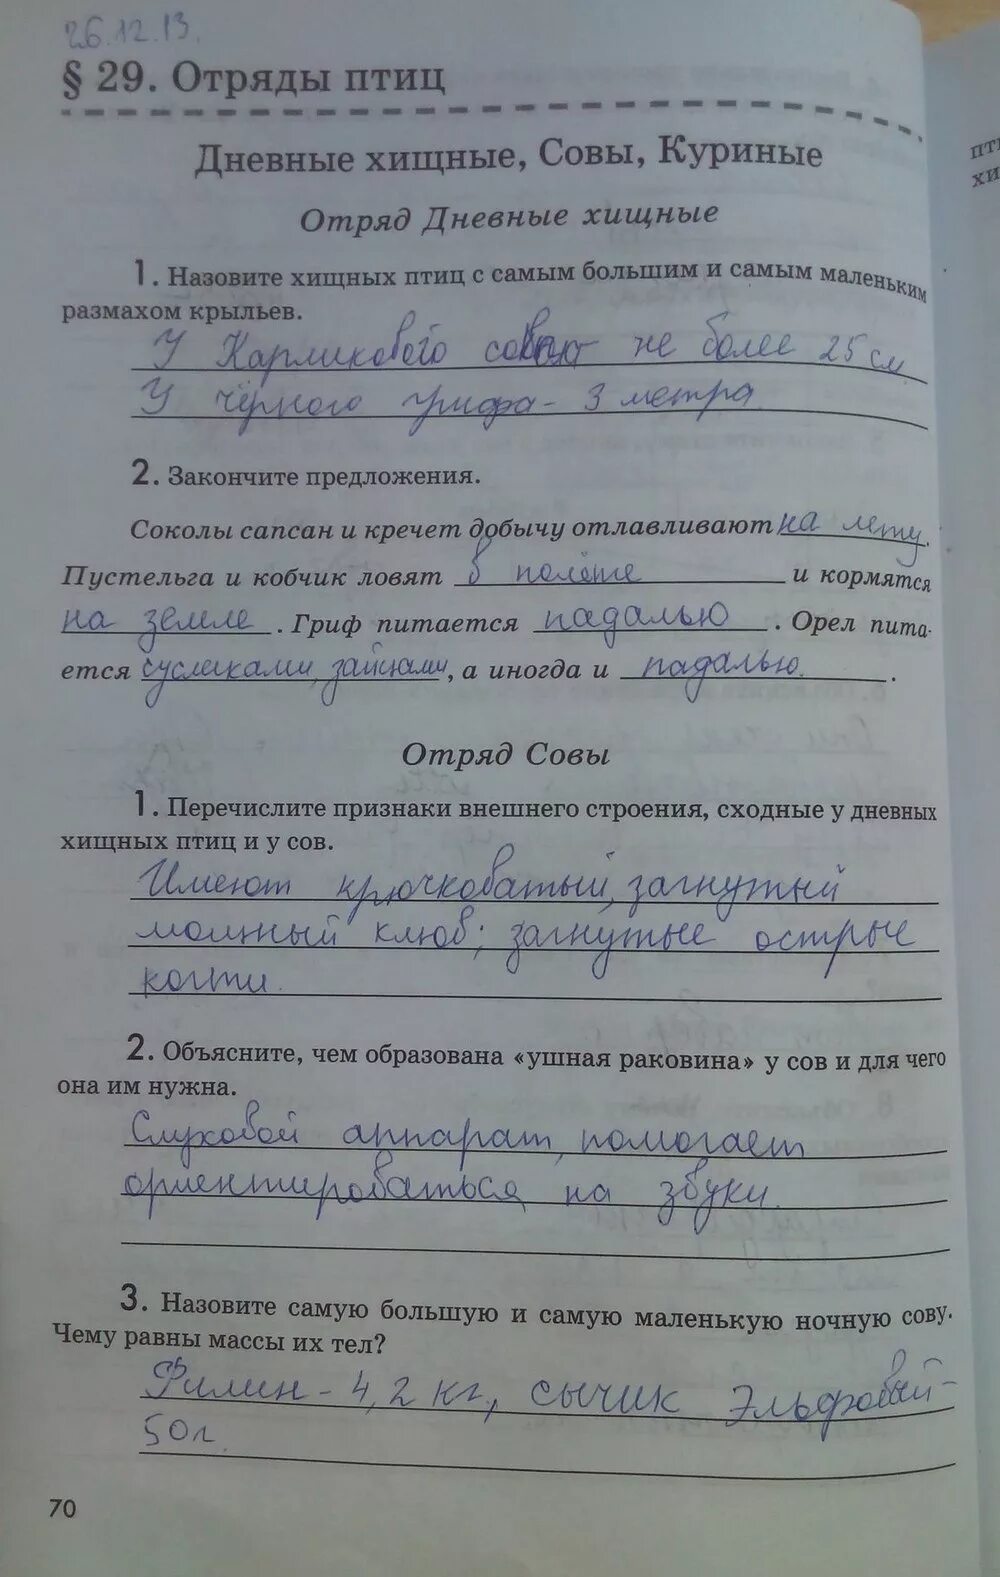 26.12.13.
§ 29. Отряды птиц
Дневные хищные, Совы, Куриные
Отряд Дневные хищные
1. Назовите хищных птиц с самым большим и самым маленьким
размахом крыльев.
У Карликового не более 25 см
У чёрного грифа - 3 метра
2. Закончите предложения.
Соколы сапсан и кречет добычу отлавливают на лету.
Пустельга и кобчик ловят в полёте и кормятся
на земле. Гриф питается падалью. Орел пита-
ется сусликами, зайцами, а иногда и падалью.
Отряд Совы
1. Перечислите признаки внешнего строения, сходные у дневных
хищных птиц и у сов.
Имеют крючковатый, загнутый
мощный клюв; загнутые острые
когти.
2. Объясните, чем образована «ушная раковина» у сов и для чего
она им нужна.
Слуховой аппарат, помогает
ориентироваться на звуки.
3. Назовите самую большую и самую маленькую ночную сову.
Чему равны массы их тел?
Филин - 4,2 кг, сычик Эльфовый -
50г.
70
пти
хи